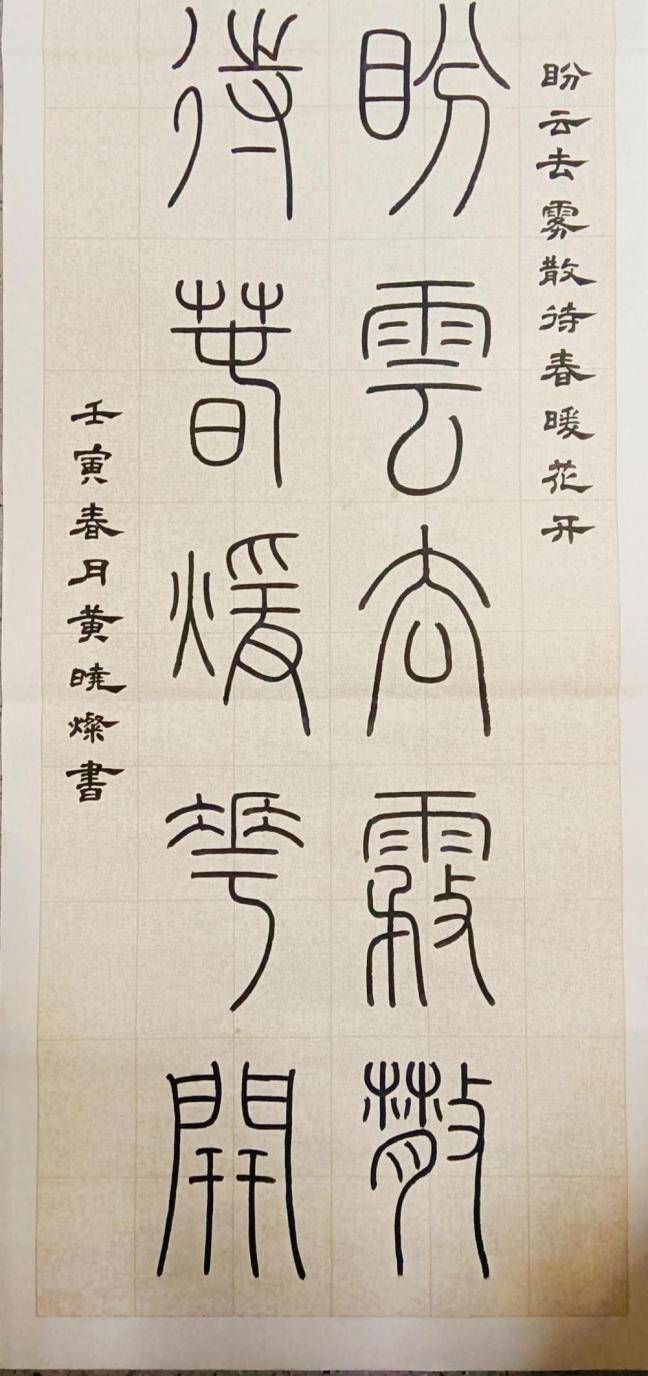 盼云去雾散待春暖花开
盼雲去霧散
待春煖花開
壬寅春月黄晓燦書